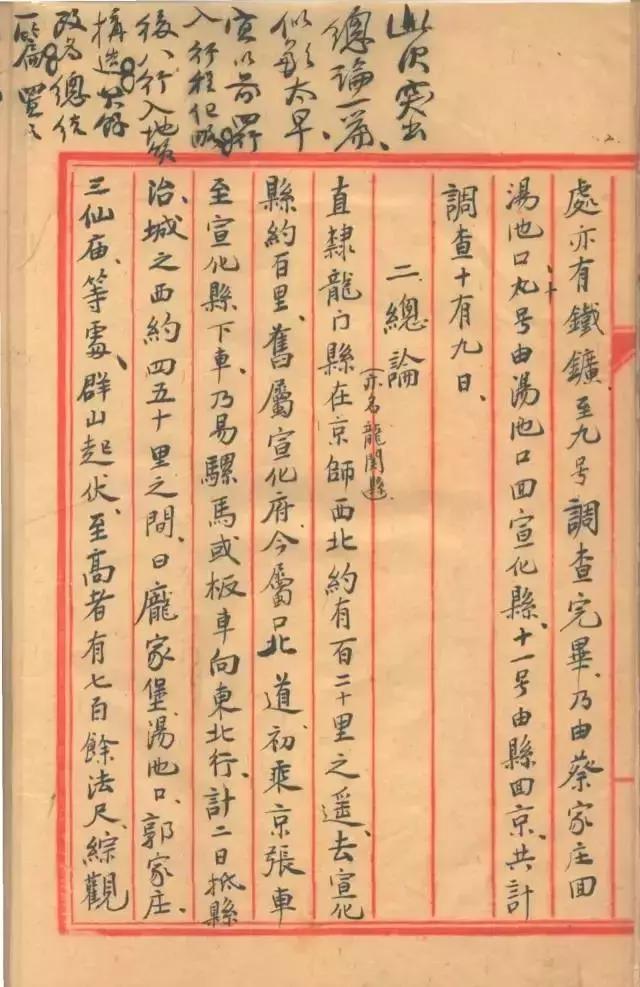 此次突出
總論一篇、
似乎太早、
宜以前四行
入行程紀略
後八行入地質
構造
改為總統
處亦有鐵鑛、至九号調查完畢、乃由蔡家庄回
湯池口、十九号由湯池口回宣化縣、十一号由縣回京、共計
調查十有九日、
二 總論
(亦名龍関縣)
直隸龍门縣在京師西北約有百二十里之遥、去宣化
縣約百里、舊屬宣化府、今屬口北道、初乘京張車
至宣化縣下車、乃易騾馬或板車向東北行、計二日抵縣
治、城之西約四五十里之間、曰龐家堡、湯池口、郭家庄、
三仙庙、等處、群山起伏、至高者有七百餘法尺、綜觀